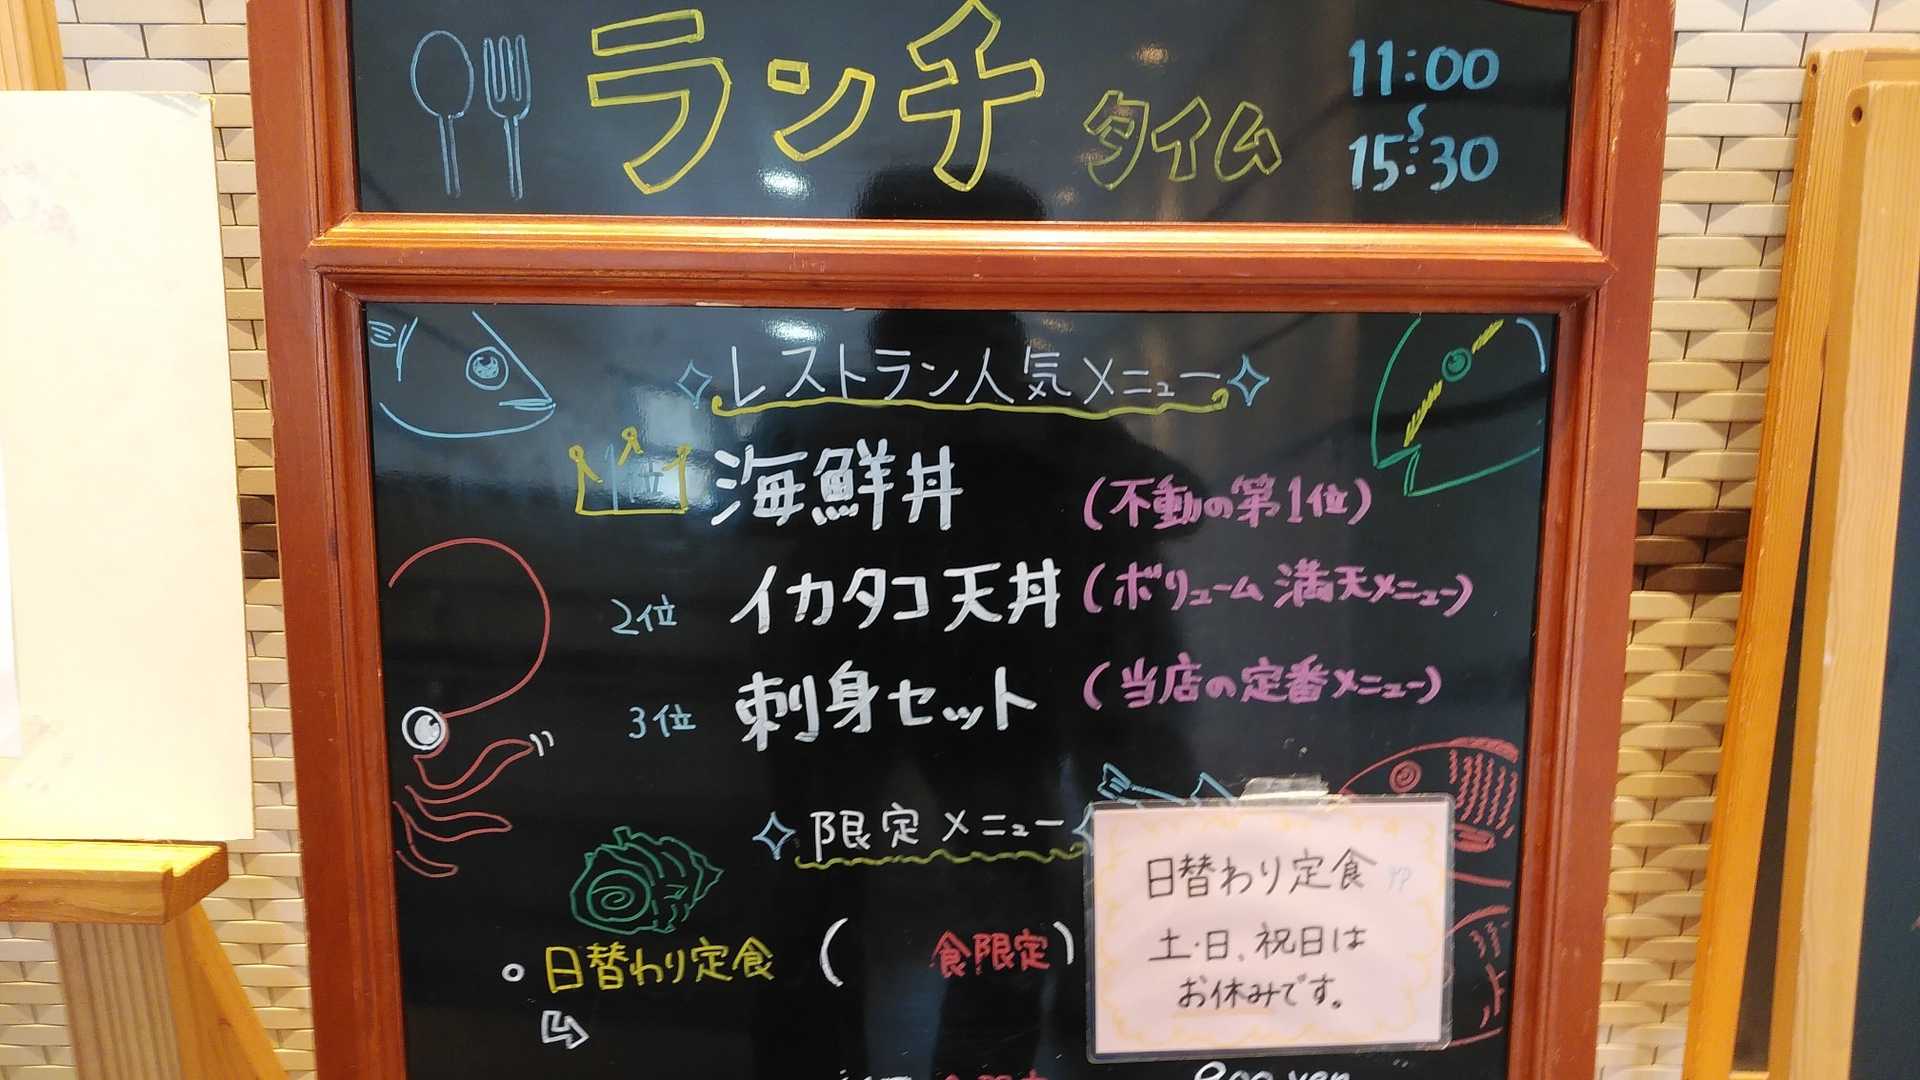 ランチタイム
11:00
〜
15:30
レストラン人気メニュー
1位 海鮮丼 (不動の第1位)
2位 イカタコ天丼 (ボリューム満天メニュー)
3位 刺身セット (当店の定番メニュー)
限定メニュー
日替わり定食 ( 食限定)
日替わり定食
土・日、祝日は
お休みです。